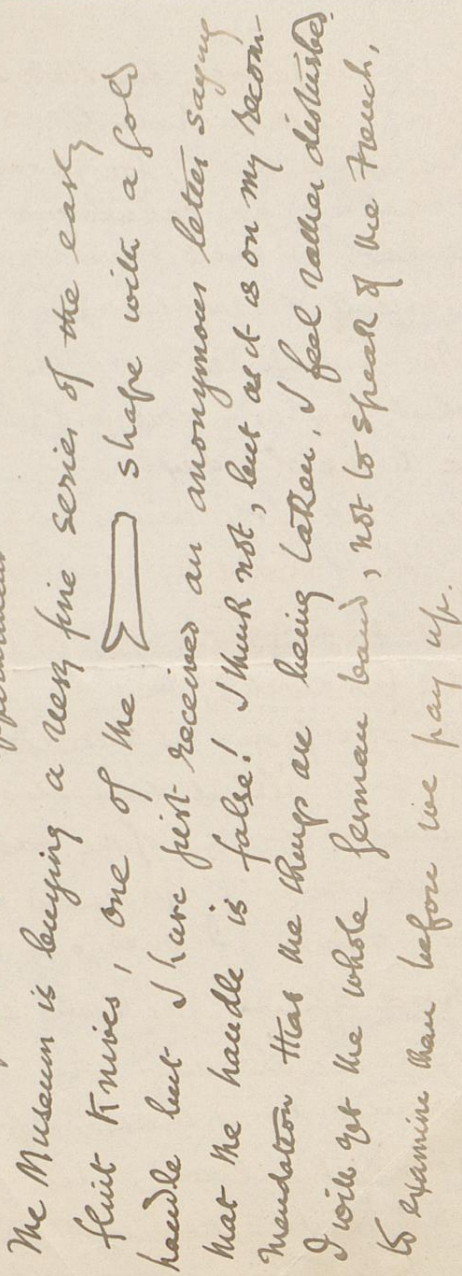 The Museum is buying a very fine series of the early
flint knives, one of the shape with a gold
handle but I have just received an anonymous letter saying
that the handle is false! I think not, but as it is on my recom-
mendation that the things are being taken, I feel rather disturbed.
I will get the whole German band, not to speak of the French,
to examine them before we pay up.